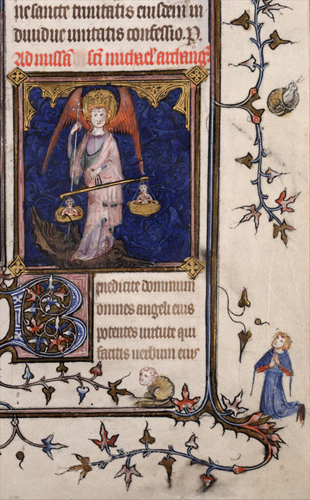 ne sancte trinitatis eiusdem in
diuidue unitatis confessio. P.
Ad missam sci michael' archang'
Benedicite dominum
omnes angeli eius
potentes uirtute qui
facitis uerbum eius